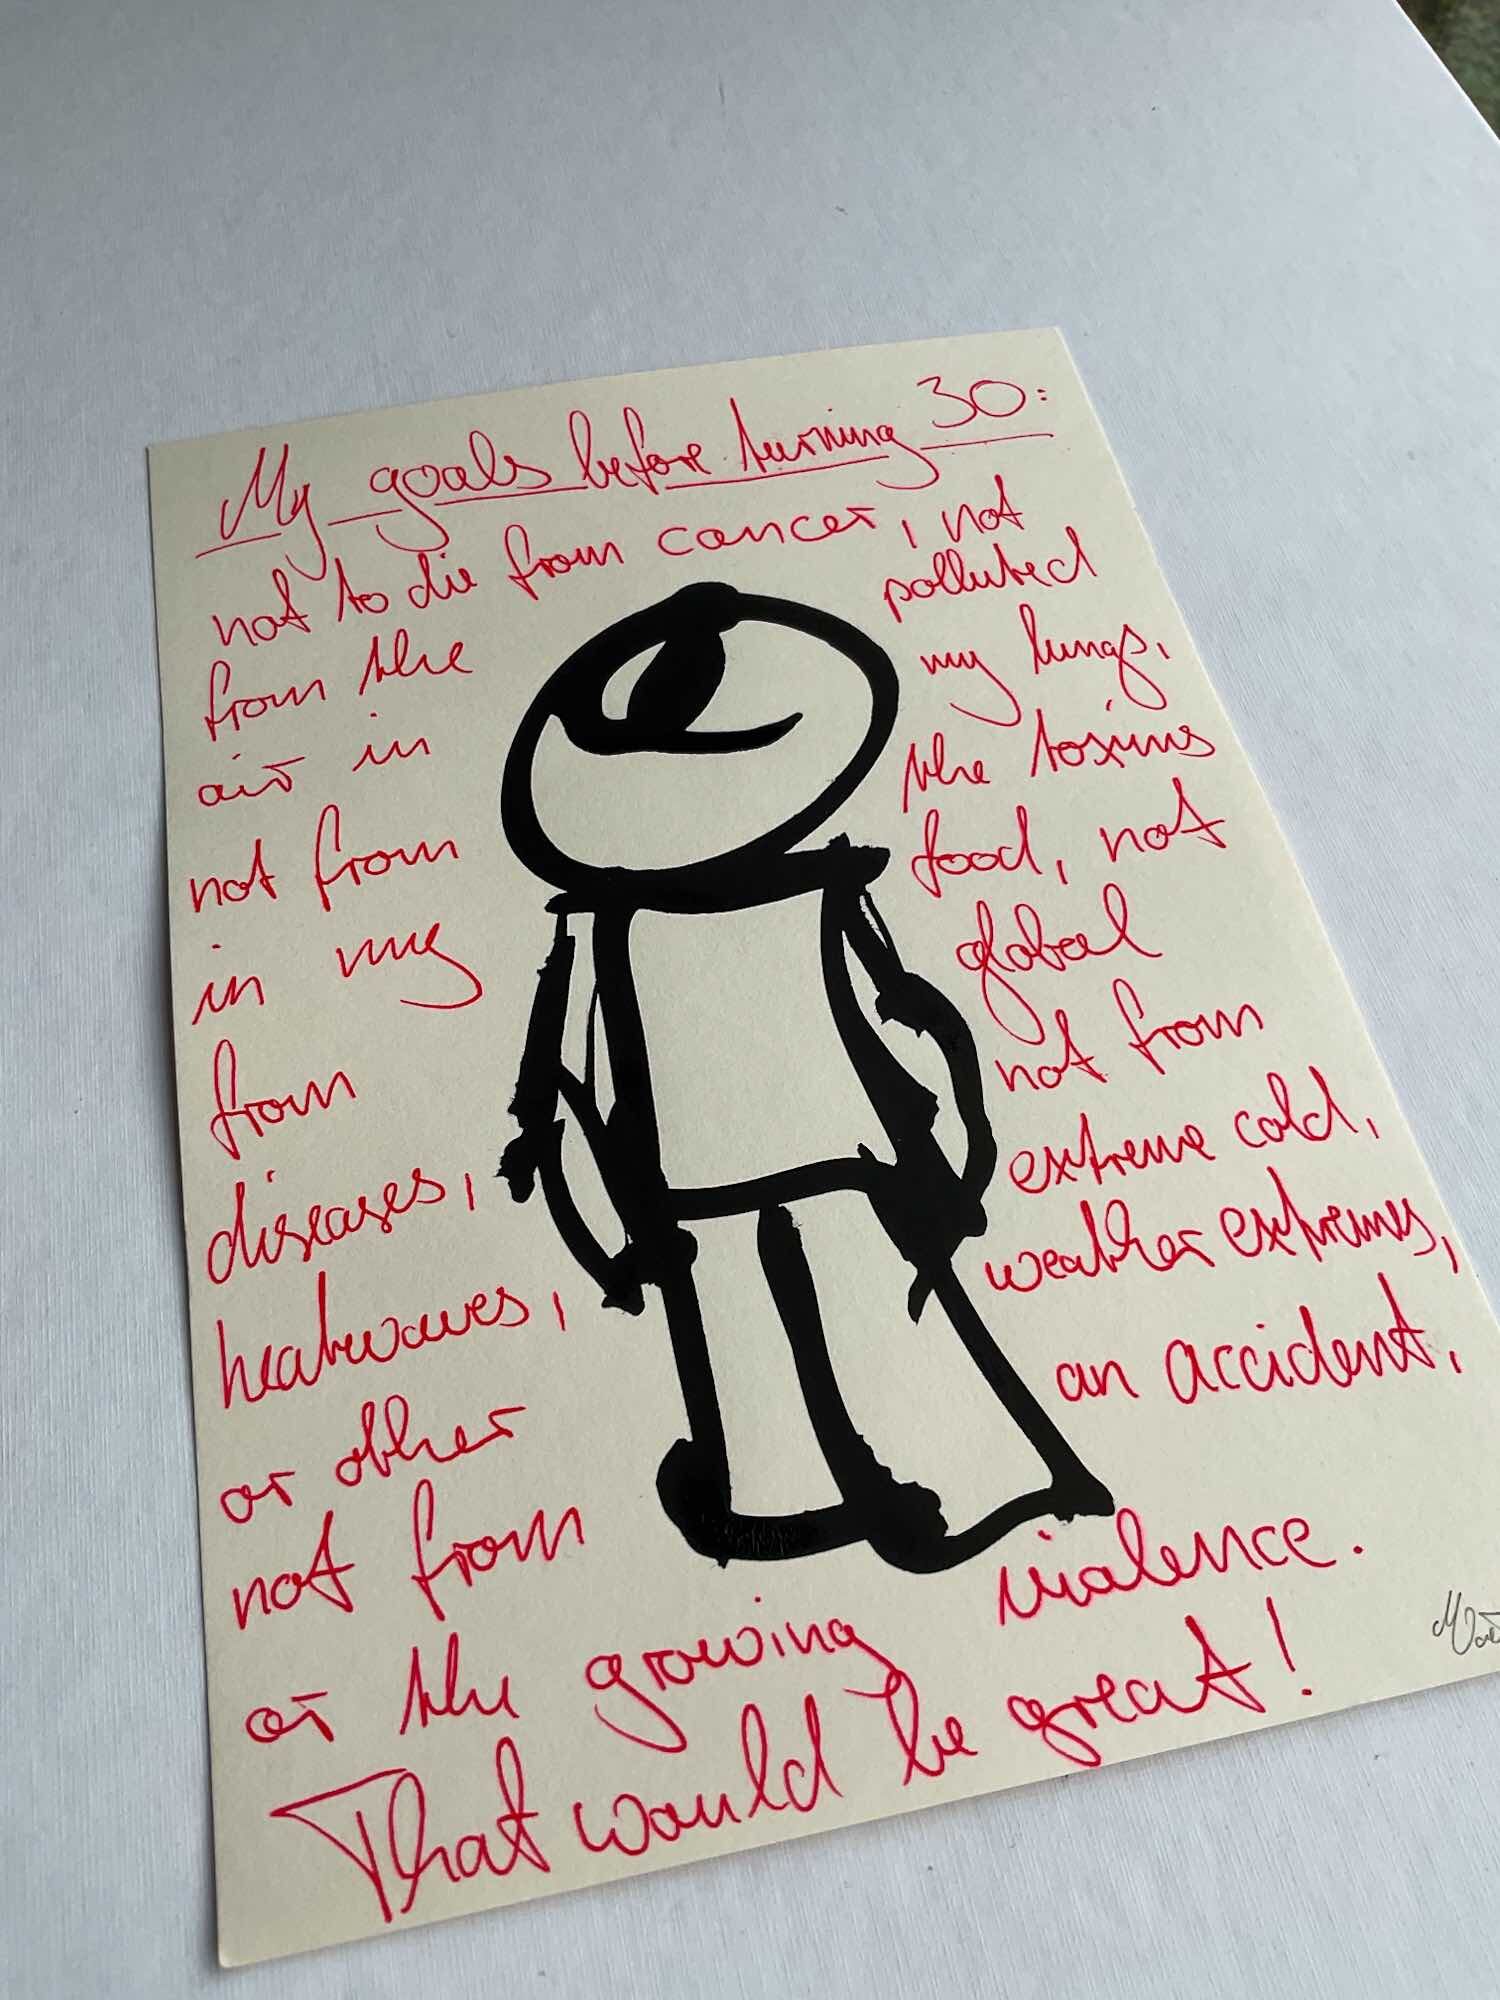 My goals before turning 30:
not to die from cancer, not
from the polluted
air in my lungs,
not from the toxins
in my food, not
from global
diseases, not from
heatwaves, extreme cold,
or other weather extremes,
not from an accident,
or the growing violence.
That would be great!